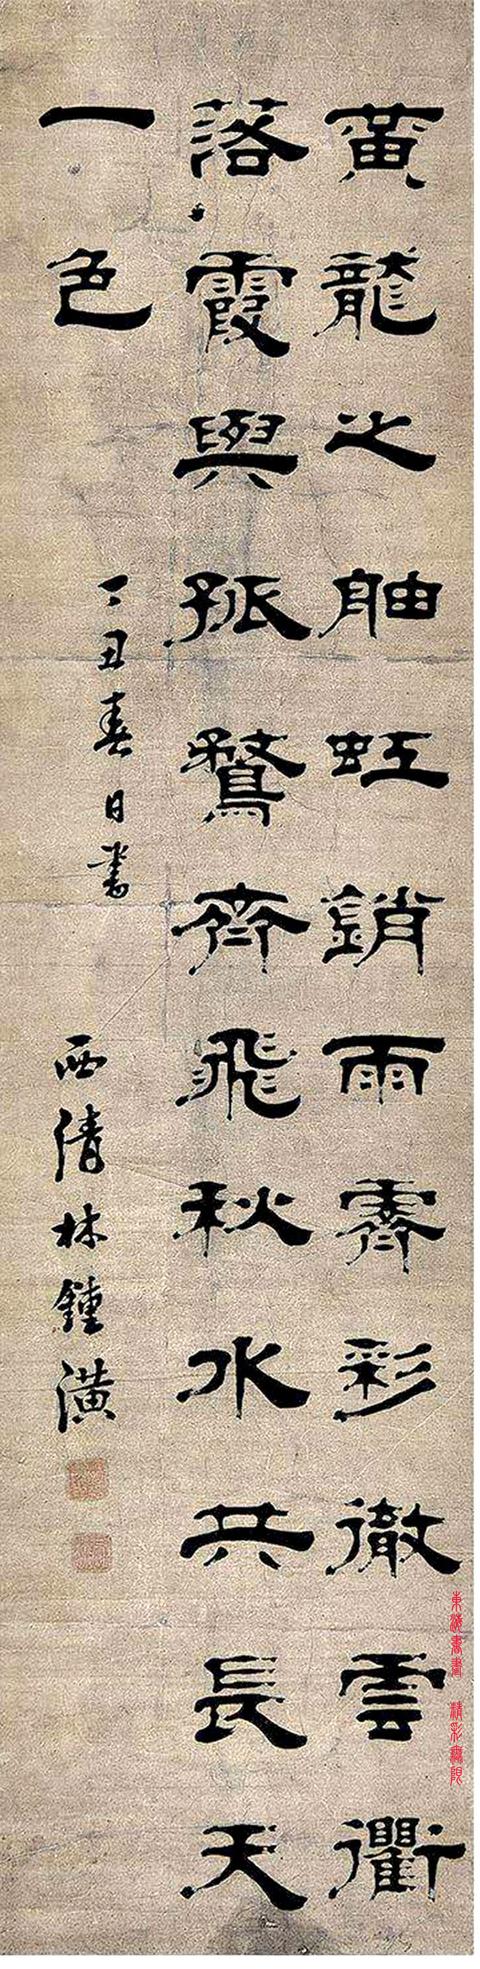 黃龍之舳虹銷雨霽彩徹雲衢
落霞與孤鶩齊飛秋水共長天
一色
丁丑春日書
西清林鍾潢
東瀛書畫 精彩無限